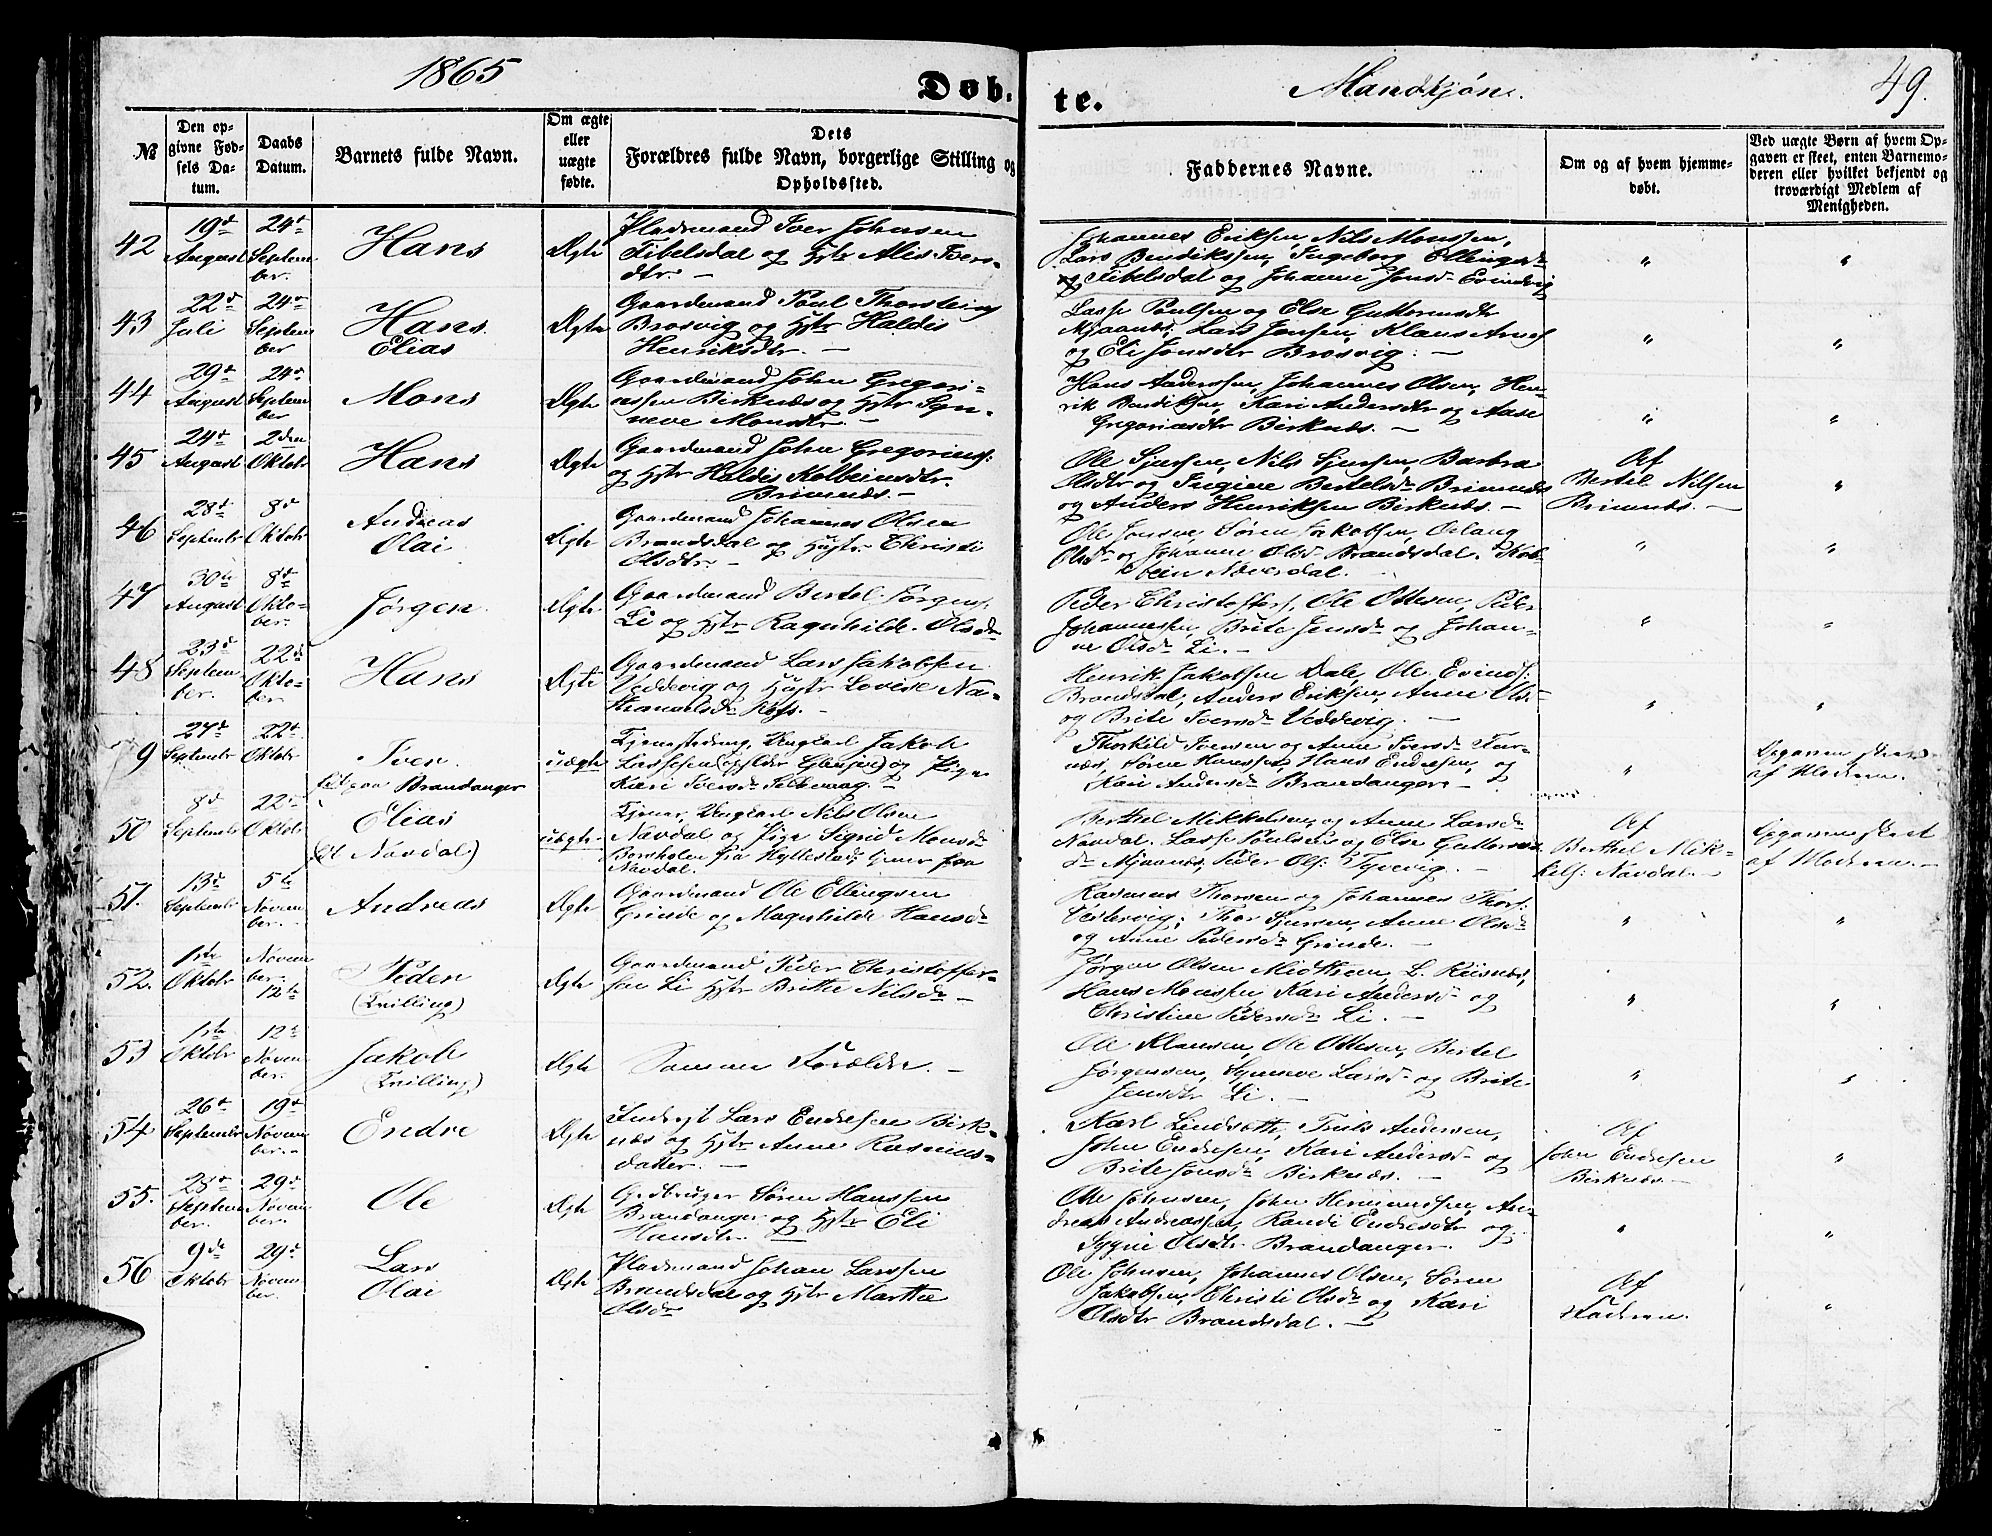 1865
Døb-
te.
Mandkjøn.
49.
№
Den op-
givne Fød-
sels Da-
tum.
Daabs
Datum.
Barnets fulde Navn.
Om ægte
eller
uægte
fødte.
Dets
Forældres fulde Navn, borgerlige Stilling og
Opholdssted.
Faddernes Navne.
Om og af hvem hjemme-
døbt.
Ved uægte Børn af hvem Op-
gaven er skeet, enten Barnemo-
deren eller hvilket bekjendt og
troværdigt Medlem af
Menigheden.
42
19d
August
24d
Septem
ber.
Hans
Ægte
Pladsmand Iver Johnsen
Tibelsdal og Hstr Alis Ivers-
dtr. —
Johannes Eriksen, Nils Monssen,
Lars Bendikssen, Ingeborg Ellingsd
og Tibelsdal og Johanne Jonsd Evindvig
"
"
43
22d
Juli
24d
Septem
ber
Hans
Elias
Ægte
Gaardmand Poul Thorsteins
Brosvig og Hstr Haldis
Henriksdtr. —
Lasse Poulsen og Else Guttormsdtr
Mjaanes, Lars Jonsen, Klaus Arnes
og Eli Jonsdtr Brosvig. —
"
"
44
29d
August
24d
Septem
ber
Mons
Ægte
Gaardmand John Gregori-
ussen Birknæs og Hstr Syn-
neve Monsdtr. —
Hans Anderssen, Johannes Olsen, Hen-
rik Bendiksen, Kari Andersdtr og Aase
Gregoriasdtr Birknæs. —
"
"
45
24d
August
2den
Oktobr
Hans
Ægte
Gaardmand John Gregorius:
og Hstr Haldis Kolbeinsdtr.
Brimnæs. —
Ole Sjursen, Nils Sjursen, Barbra
Olsdtr og Ingine Bertelsd Brimnæs
og Anders Henriksen Birknæs. —
Af
Bertel Nilsen
Brimnæs. —
"
46
28d
Septembr
8d
Oktobr
Andreas
Olai
Ægte
Gaardmand Johannes Olsen
Brandsdal og Hstr. Christi
Olsdtr. —
Ole Jonsen, Søren Jakobsen, Orlaug
Olsdtr og Johanne Olsd Brandsdal. Kol-
bein Næverdal.
"
"
47
30te
August
8d
Okto-
ber.
Jørgen
Ægte
Gaardmand Bertel Jørgens.
Li og Hstr Ragnhilde Olsd
Peder Christoffers, Ole Ottesen, Peder
Johannessen, Brite Jensd og Johan-
ne Olsd Li. —
"
"
48
23d
Septem
ber.
22d
Okto-
ber.
Hans
Ægte
Gaardmand Lars Jakobsen
Veddevig og Hstr Lovise Na-
thanaelsd
Henrik Jakobsen Dale, Ole Evinds:
Brandsdal, Anders Eriksen, Anne Ols-
og Brite Iversd Veddevig. —
"
"
9
27d
Septembr
22d
Oktobr
Iver
til paa Brandanger
uægte
Tjenestedreng, Ungkarl Jakob
Lassesen og Pige
Kari Iversd
Thorkild Ivensen og Anne Iversd Tur-
næs, Søren Hanssen, Hans Endresen, og
Kari Andersd Brandanger. —
"
Opgaven skeet
af Moderen.
50
8d
Septembr
22d
Oktobr
Elias
(til Navdal)
uægte
Tjener, Ungkarl Nils Olsen
Navdal og Pige Sigrid Monsd
Bornholen fra Hyllestad, tjener paa
Navdal.
Berthel Mikkelsen og Anne Larsd
Navdal. Lasse Poulsen og Else Guttorms
d Mjaanæs, Peder Ols: Tyvevig. —
Af
Berthel Mik-
kels: Navdal. —
Opgaven skeet
af Moderen. —
51.
13d
Septembr
5te
Novem
ber.
Andreas
Ægte
Gaardmand Ole Ellingsen
Grinde og Magnhilde Hansd
Rasmus Thorsen og Johannes Thors:
Veslevvig, Thor Sjursen, Anne Olsd
og Anne Pedersd Grinde. —
"
"
52.
1ste
Oktobr
Novem
ber.
12te
Peder
(Tvilling)
Ægte
Gaardmand Peder Christoffer-
sen Li Hstr Britte Nilsd —
Jørgen Olsen Midthun, L. Riisnæs,
Hans Monsen, Kari Andersd og
Christine Pedersd Li. —
"
"
53
1ste
Oktobr
12te
Novem
ber.
Jakob
(Tvilling)
Ægte
Samme Forældre. —
Ole Klausen, Ole Ottesen, Bertel
Jørgensen, Synneve Larsd og Brite
Jensdtr Li. —
"
"
54
26d
Septembr
19d
Novem
ber.
Endre
Ægte
Inderst Lars Endresen Birk-
næs og Hstr Anne Rasmus-
datter. —
Karl Lindseth, Anders Andersen,
John Endresen, Kari Andersd og
Brite Jonsd Birknæs. —
Af
John Endresen
Birknæs. —
"
55.
28d
Septem
ber.
29d
Novem
ber.
Ole
Ægte
Grdbruger Søren Hanssen
Brandanger og Hstr Eli
Hansdtr.
Ole Johnsen, John Hermundsen, An-
dreas Andreassen, Randi Endresdtr og
Sygni Olsdtr. Brandanger.
"
"
56
9de
Oktobr
29d
Novem
ber.
Lars
Olai
Ægte
Pladsmand Johan Larssen
Brandsdal og Hstr Marthe
Olsd
Ole Johnsen, Johannes Olsen, Søren
Jakobsen, Christi Olsd og Kari
Olsdtr Brandsdal. —
Af
Moderen.
"